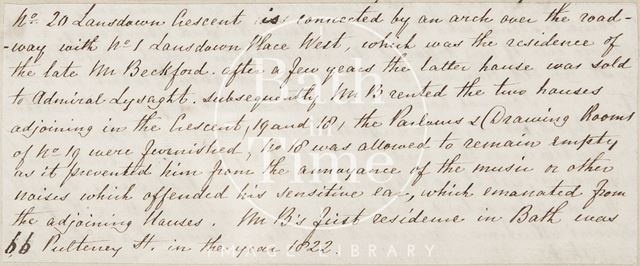 No. 20 Lansdown Crescent is connected by an arch over the road-
-way with No. 1 Lansdown Place West, which was the residence of
the late Mr Beckford. after a few years the latter house was sold
to Admiral Lysaght. subsequently Mr B rented the two houses
adjoining in the Crescent, 19 and 18, the Parlours & Drawing Rooms
of No. 19 were furnished, No. 18 was allowed to remain empty
as it prevented him from the annoyance of the music or other
noises which offended his sensitive ear, which emanated from
the adjoining Houses. Mr B's first residence in Bath was
66 Pulteney St. in the year 1822.
Bath in Time
IMAGE LIBRARY